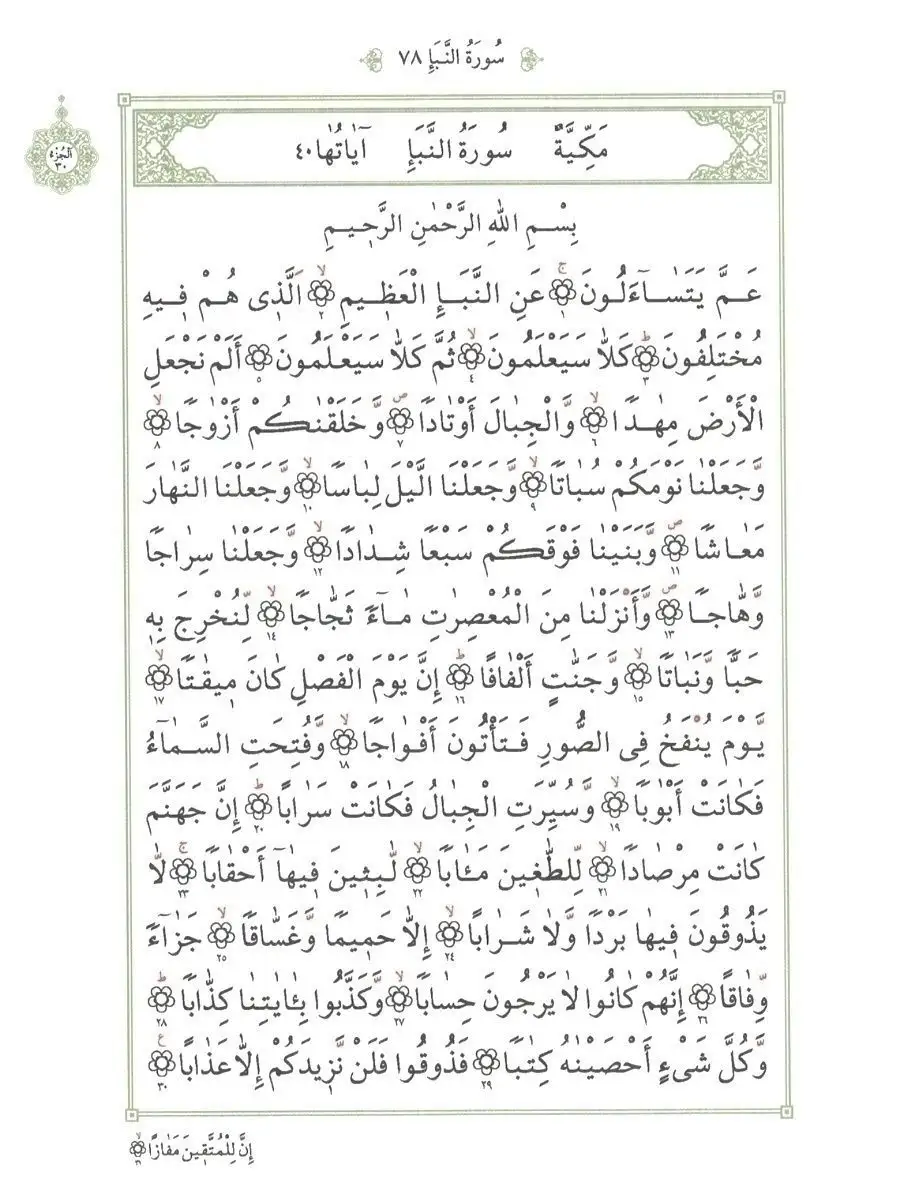 سُورَةُ النَّبَإِ ٧٨
اَلْجُزْءُ
٣٠
مَكِّيَّةٌ سُورَةُ النَّبَإِ آيَاتُهَا ٤٠
بِسْمِ اللهِ الرَّحْمٰنِ الرَّحِيمِ
عَمَّ يَتَسَاۤءَلُونَ ۚ ١ عَنِ النَّبَإِ الْعَظِيمِ ۙ ٢ الَّذِى هُمْ فِيهِ
مُخْتَلِفُونَ ۗ ٣ كَلَّا سَيَعْلَمُونَ ۙ ٤ ثُمَّ كَلَّا سَيَعْلَمُونَ ٥ أَلَمْ نَجْعَلِ
الْأَرْضَ مِهٰدًا ۙ ٦ وَّالْجِبَالَ أَوْتَادًا ۖ ٧ وَّخَلَقْنٰكُمْ أَزْوٰجًا ۙ ٨
وَّجَعَلْنَا نَوْمَكُمْ سُبَاتًا ۙ ٩ وَّجَعَلْنَا الَّيْلَ لِبَاسًا ۙ ١٠ وَّجَعَلْنَا النَّهَارَ
مَعَاشًا ۖ ١١ وَّبَنَيْنَا فَوْقَكُمْ سَبْعًا شِدَادًا ۙ ١٢ وَّجَعَلْنَا سِرَاجًا
وَّهَّاجًا ۖ ١٣ وَّأَنْزَلْنَا مِنَ الْمُعْصِرٰتِ مَاۤءً ثَجَّاجًا ۙ ١٤ لِّنُخْرِجَ بِهٖ
حَبًّا وَّنَبَاتًا ۙ ١٥ وَّجَنّٰتٍ أَلْفَافًا ۗ ١٦ إِنَّ يَوْمَ الْفَصْلِ كَانَ مِيقٰتًا ۙ ١٧
يَّوْمَ يُنْفَخُ فِى الصُّورِ فَتَأْتُونَ أَفْوَاجًا ۙ ١٨ وَّفُتِحَتِ السَّمَاۤءُ
فَكَانَتْ أَبْوٰبًا ۙ ١٩ وَّسُيِّرَتِ الْجِبَالُ فَكَانَتْ سَرَابًا ۗ ٢٠ إِنَّ جَهَنَّمَ
كَانَتْ مِرْصَادًا ۙ ٢١ لِّلطّٰغِينَ مَـَٔابًا ۙ ٢٢ لّٰبِثِينَ فِيهَاۤ أَحْقَابًا ۚ ٢٣ لَّا
يَذُوقُونَ فِيهَا بَرْدًا وَّلَا شَرَابًا ۙ ٢٤ إِلَّا حَمِيمًا وَّغَسَّاقًا ۙ ٢٥ جَزَاۤءً
وِّفَاقًا ۗ ٢٦ إِنَّهُمْ كَانُوا لَا يَرْجُونَ حِسَابًا ۙ ٢٧ وَّكَذَّبُوا بِـَٔايٰتِنَا كِذَّابًا ۗ ٢٨
وَّكُلَّ شَىْءٍ أَحْصَيْنٰهُ كِتٰبًا ۙ ٢٩ فَذُوقُوا فَلَنْ نَّزِيدَكُمْ إِلَّا عَذَابًا ࣖ ٣٠
إِنَّ لِلْمُتَّقِينَ مَفَازًا ۙ ٣١